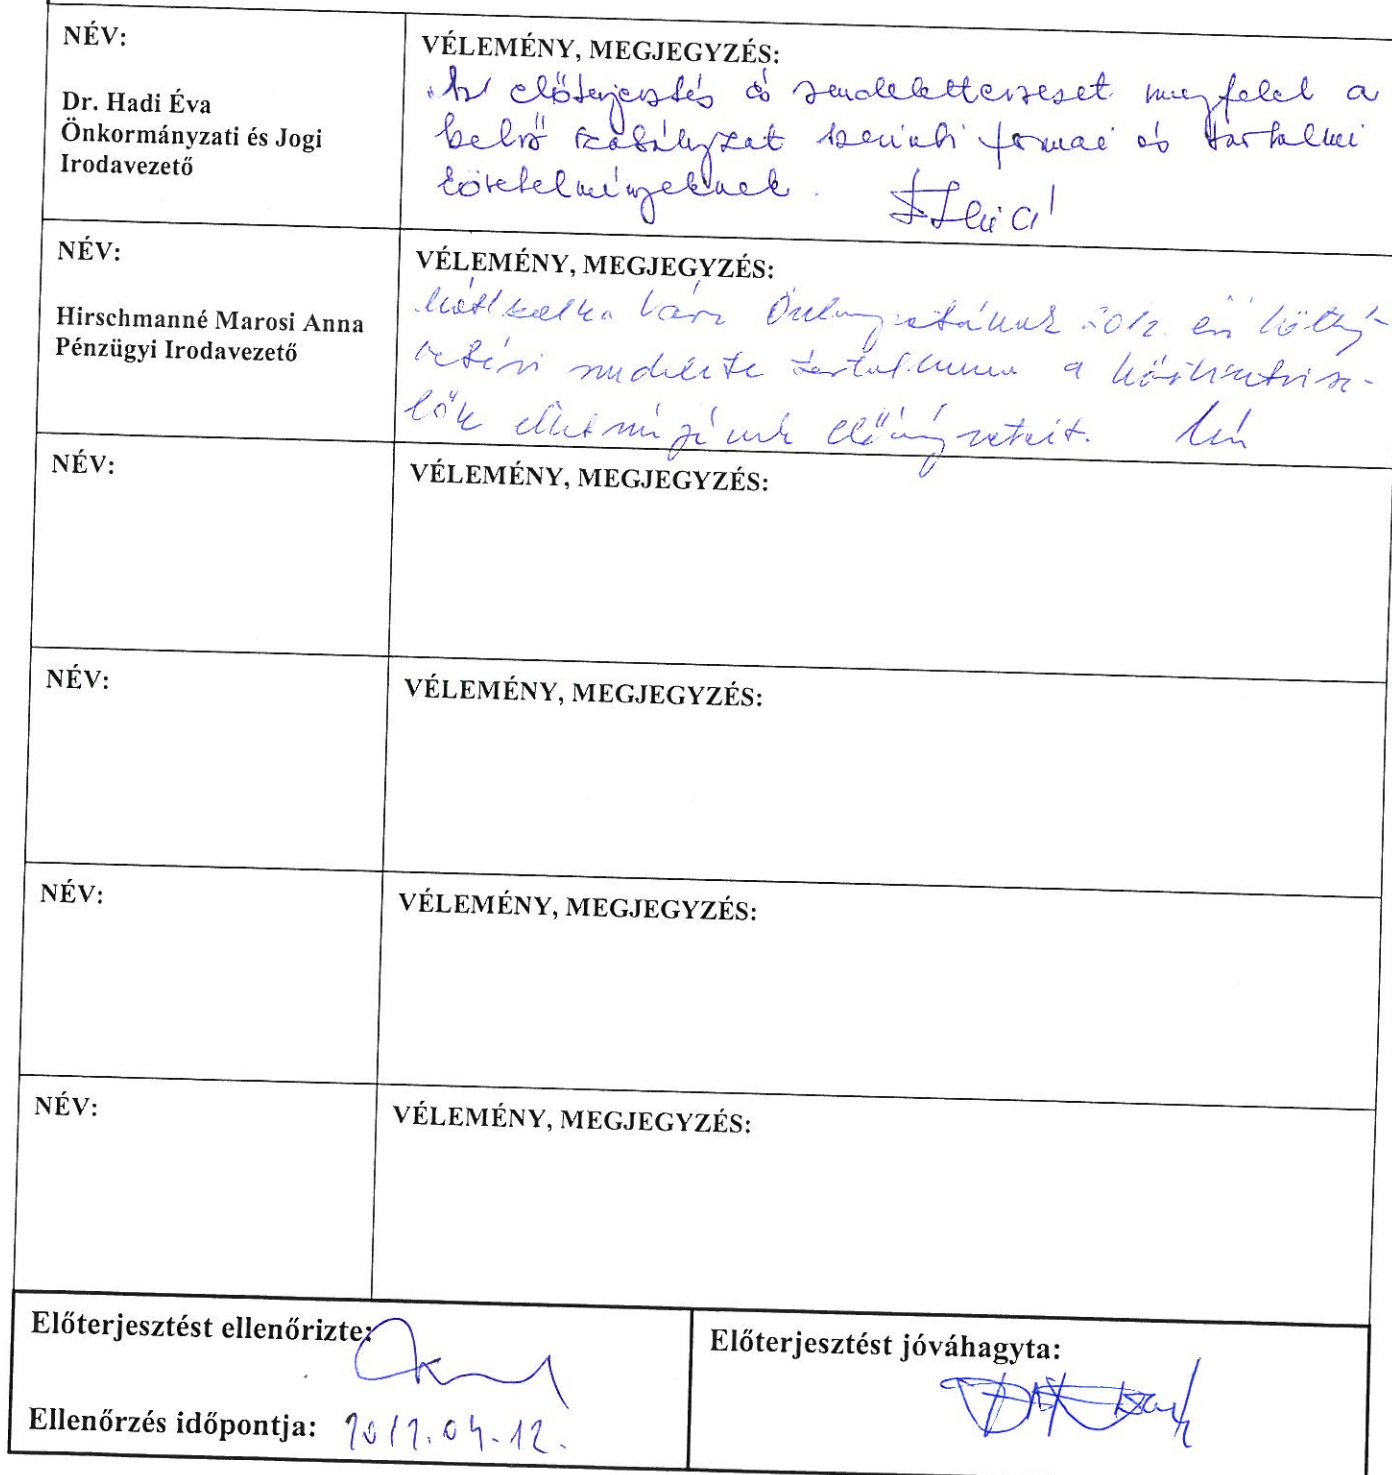 NÉV:
Dr. Hadi Éva
Önkormányzati és Jogi
Irodavezető
VÉLEMÉNY, MEGJEGYZÉS:
Az előterjesztés és rendelettervezet megfelel a
belső szabályzat szerinti formai és tartalmi
követelményeknek.
NÉV:
Hirschmanné Marosi Anna
Pénzügyi Irodavezető
VÉLEMÉNY, MEGJEGYZÉS:
Város Önkormányzatának 2012. évi költség-
vetési rendelete tartalmazza a köztisztvise-
lők előirányzatait.
NÉV:
VÉLEMÉNY, MEGJEGYZÉS:
NÉV:
VÉLEMÉNY, MEGJEGYZÉS:
NÉV:
VÉLEMÉNY, MEGJEGYZÉS:
NÉV:
VÉLEMÉNY, MEGJEGYZÉS:
Előterjesztést ellenőrizte:
Ellenőrzés időpontja: 2012.04.12.
Előterjesztést jóváhagyta: